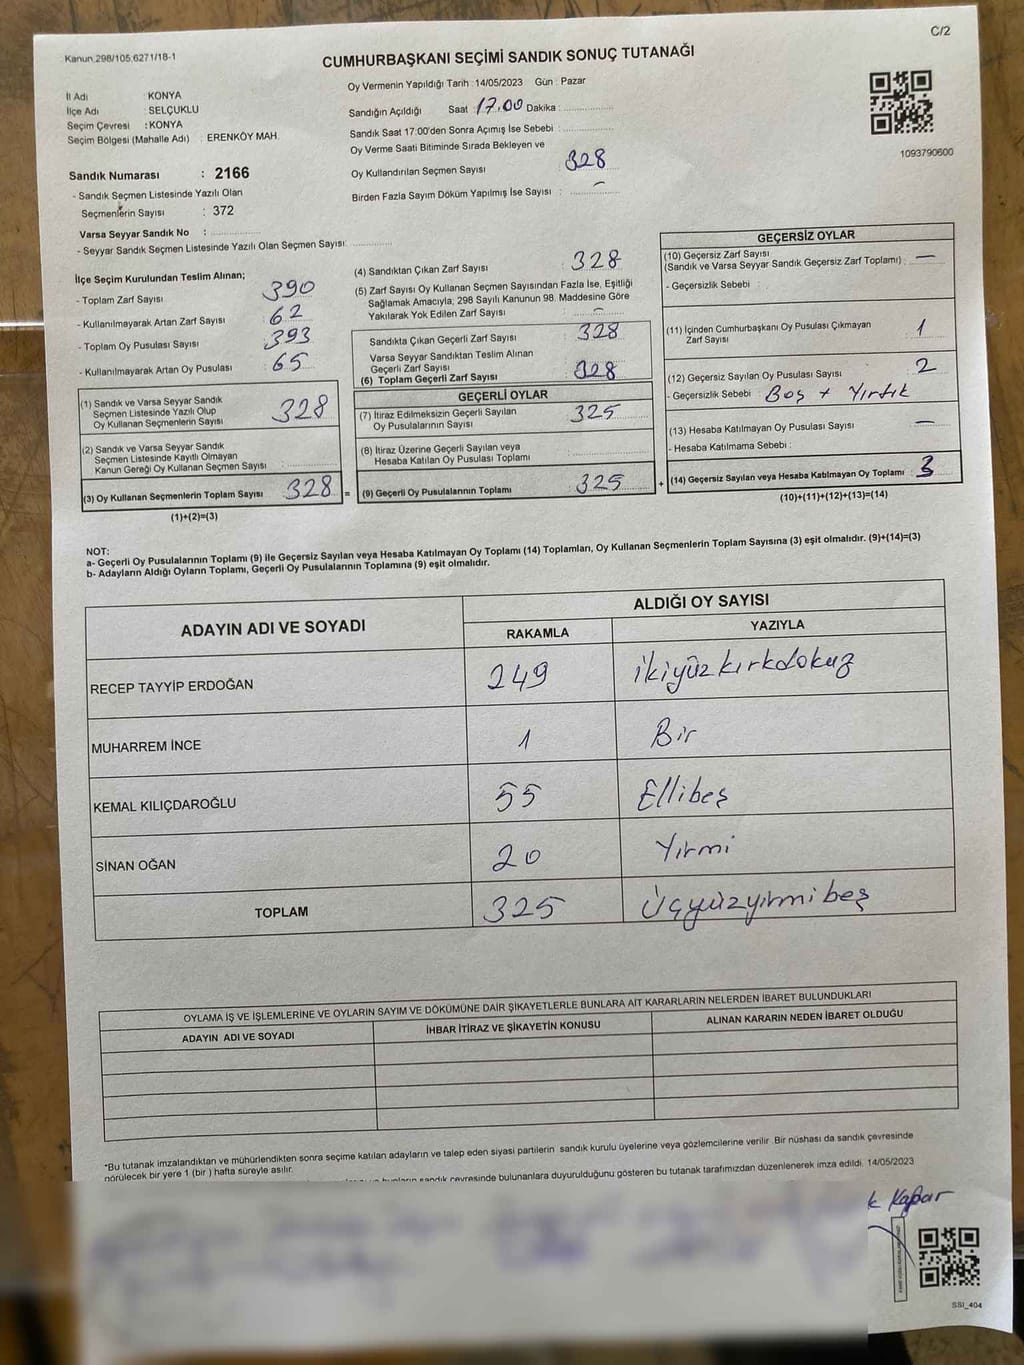 C/2
Kanun.298/105,6271/18-1
CUMHURBAŞKANI SEÇİMİ SANDIK SONUÇ TUTANAĞI
Oy Vermenin Yapıldığı Tarih : 14/05/2023 Gün : Pazar
İl Adı : KONYA
İlçe Adı : SELÇUKLU
Seçim Çevresi : KONYA
Seçim Bölgesi (Mahalle Adı) : ERENKÖY MAH.
Sandığın Açıldığı Saat : 17.00 Dakika :
Sandık Saat 17:00'den Sonra Açımış İse Sebebi :
Oy Verme Saati Bitiminde Sırada Bekleyen ve
Oy Kullandırılan Seçmen Sayısı 328
Birden Fazla Sayım Döküm Yapılmış İse Sayısı : –
1093790600
Sandık Numarası : 2166
- Sandık Seçmen Listesinde Yazılı Olan
Seçmenlerin Sayısı : 372
Varsa Seyyar Sandık No :
- Seyyar Sandık Seçmen Listesinde Yazılı Olan Seçmen Sayısı:
İlçe Seçim Kurulundan Teslim Alınan;
- Toplam Zarf Sayısı 390
- Kullanılmayarak Artan Zarf Sayısı : 62
- Toplam Oy Pusulası Sayısı : 393
- Kullanılmayarak Artan Oy Pusulası : 65
(1) Sandık ve Varsa Seyyar Sandık
Seçmen Listesinde Yazılı Olup
Oy Kullanan Seçmenlerin Sayısı : 328
(2) Sandık ve Varsa Seyyar Sandık
Seçmen Listesinde Kayıtlı Olmayan
Kanun Gereği Oy Kullanan Seçmen Sayısı :
(3) Oy Kullanan Seçmenlerin Toplam Sayısı 328 =
(1)+(2)=(3)
(4) Sandıktan Çıkan Zarf Sayısı : 328
(5) Zarf Sayısı Oy Kullanan Seçmen Sayısından Fazla İse, Eşitliği
Sağlamak Amacıyla; 298 Sayılı Kanunun 98. Maddesine Göre
Yakılarak Yok Edilen Zarf Sayısı : –
Sandıkta Çıkan Geçerli Zarf Sayısı : 328
Varsa Seyyar Sandıktan Teslim Alınan
Geçerli Zarf Sayısı :
(6) Toplam Geçerli Zarf Sayısı 328
GEÇERLİ OYLAR
(7) İtiraz Edilmeksizin Geçerli Sayılan
Oy Pusulalarının Sayısı : 325
(8) İtiraz Üzerine Geçerli Sayılan veya
Hesaba Katılan Oy Pusulası Toplamı :
(9) Geçerli Oy Pusulalarının Toplamı : 325 +
GEÇERSİZ OYLAR
(10) Geçersiz Zarf Sayısı
(Sandık ve Varsa Seyyar Sandık Geçersiz Zarf Toplamı) : –
- Geçersizlik Sebebi :
(11) İçinden Cumhurbaşkanı Oy Pusulası Çıkmayan
Zarf Sayısı : 1
(12) Geçersiz Sayılan Oy Pusulası Sayısı : 2
- Geçersizlik Sebebi : Boş + Yırtık
(13) Hesaba Katılmayan Oy Pusulası Sayısı : –
- Hesaba Katılmama Sebebi :
(14) Geçersiz Sayılan veya Hesaba Katılmayan Oy Toplamı : 3
(10)+(11)+(12)+(13)=(14)
NOT:
a- Geçerli Oy Pusulalarının Toplamı (9) ile Geçersiz Sayılan veya Hesaba Katılmayan Oy Toplamı (14) Toplamları, Oy Kullanan Seçmenlerin Toplam Sayısına (3) eşit olmalıdır. (9)+(14)=(3)
b- Adayların Aldığı Oyların Toplamı, Geçerli Oy Pusulalarının Toplamına (9) eşit olmalıdır.
ADAYIN ADI VE SOYADI
ALDIĞI OY SAYISI
RAKAMLA YAZIYLA
RECEP TAYYİP ERDOĞAN 249 ikiyüzkırkdokuz
MUHARREM İNCE 1 Bir
KEMAL KILIÇDAROĞLU 55 Ellibeş
SİNAN OĞAN 20 Yirmi
TOPLAM 325 Üçyüzyirmibeş
OYLAMA İŞ VE İŞLEMLERİNE VE OYLARIN SAYIM VE DÖKÜMÜNE DAİR ŞİKAYETLERLE BUNLARA AİT KARARLARIN NELERDEN İBARET BULUNDUKLARI
ADAYIN ADI VE SOYADI İHBAR İTİRAZ VE ŞİKAYETİN KONUSU ALINAN KARARIN NEDEN İBARET OLDUĞU
*Bu tutanak imzalandıktan ve mühürlendikten sonra seçime katılan adayların ve talep eden siyasi partilerin sandık kurulu üyelerine veya gözlemcilerine verilir. Bir nüshası da sandık çevresinde
görülecek bir yere 1 (bir) hafta süreyle asılır.
bunların sandık çevresinde bulunanlara duyurulduğunu gösteren bu tutanak tarafımızdan düzenlenerek imza edildi. 14/05/2023
k Kapar
SSI_404